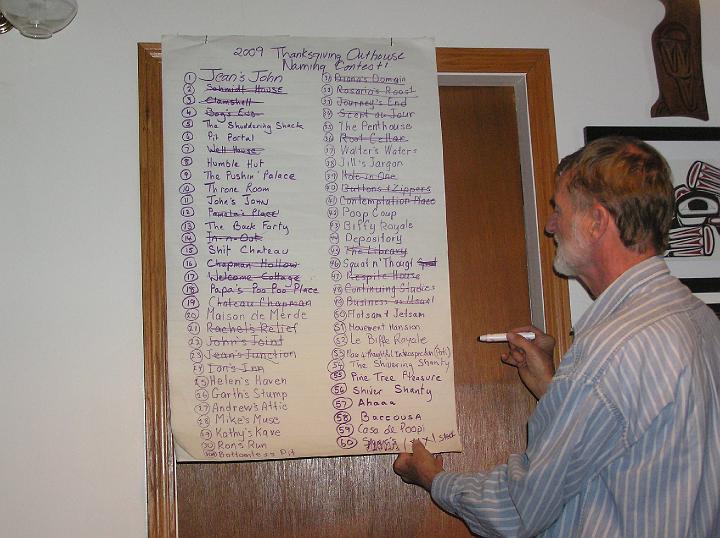 2009 Thanksgiving Outhouse
Naming Contest!
1 Jean's John
2 Schmidt House
3 Clamshell
4 Bog's End
5 The Shuddering Shack
6 Pit Portal
7 Well House
8 Humble Hut
9 The Pushin' Palace
10 Throne Room
11 John's John
12 Pamela's Place
13 The Back Forty
14 In-n-Out
15 Shit Chateau
16 Chapman Hollow
17 Welcome Cottage
18 Papa's Poo Poo Place
19 Chateau Chapman
20 Maison de Merde
21 Rachel's Relief
22 John's Joint
23 Jean's Junction
24 Ian's Inn
25 Helen's Haven
26 Garth's Stump
27 Andrew's Attic
28 Mike's Muse
29 Kathy's Kave
30 Ron's Run
Bottomless Pit
31 Domain
32 Rosario's Roost
33 Journey's End
34 Scent au Jour
35 The Penthouse
36 Root Cellar
37 Walter's Waters
38 Jill's Jargon
39 Hole in One
40 Buttons & Zippers
41 Contemplation Place
42 Poop Coup
43 Biffy Royale
44 Depository
45 The Library
46 Squat n' Thought
47 Respite House
48 Continuing Studies
49 Business as Usual
50 Flotsam & Jetsam
51 Movement Mansion
52 Le Biffe Royale
53 thoughtful Introspection
54 The Shivering Shanty
55 Pine Tree Pleasure
56 Shiver Shanty
57 Ahaaa
58 Baccousa
59 Casa de Poopi
60